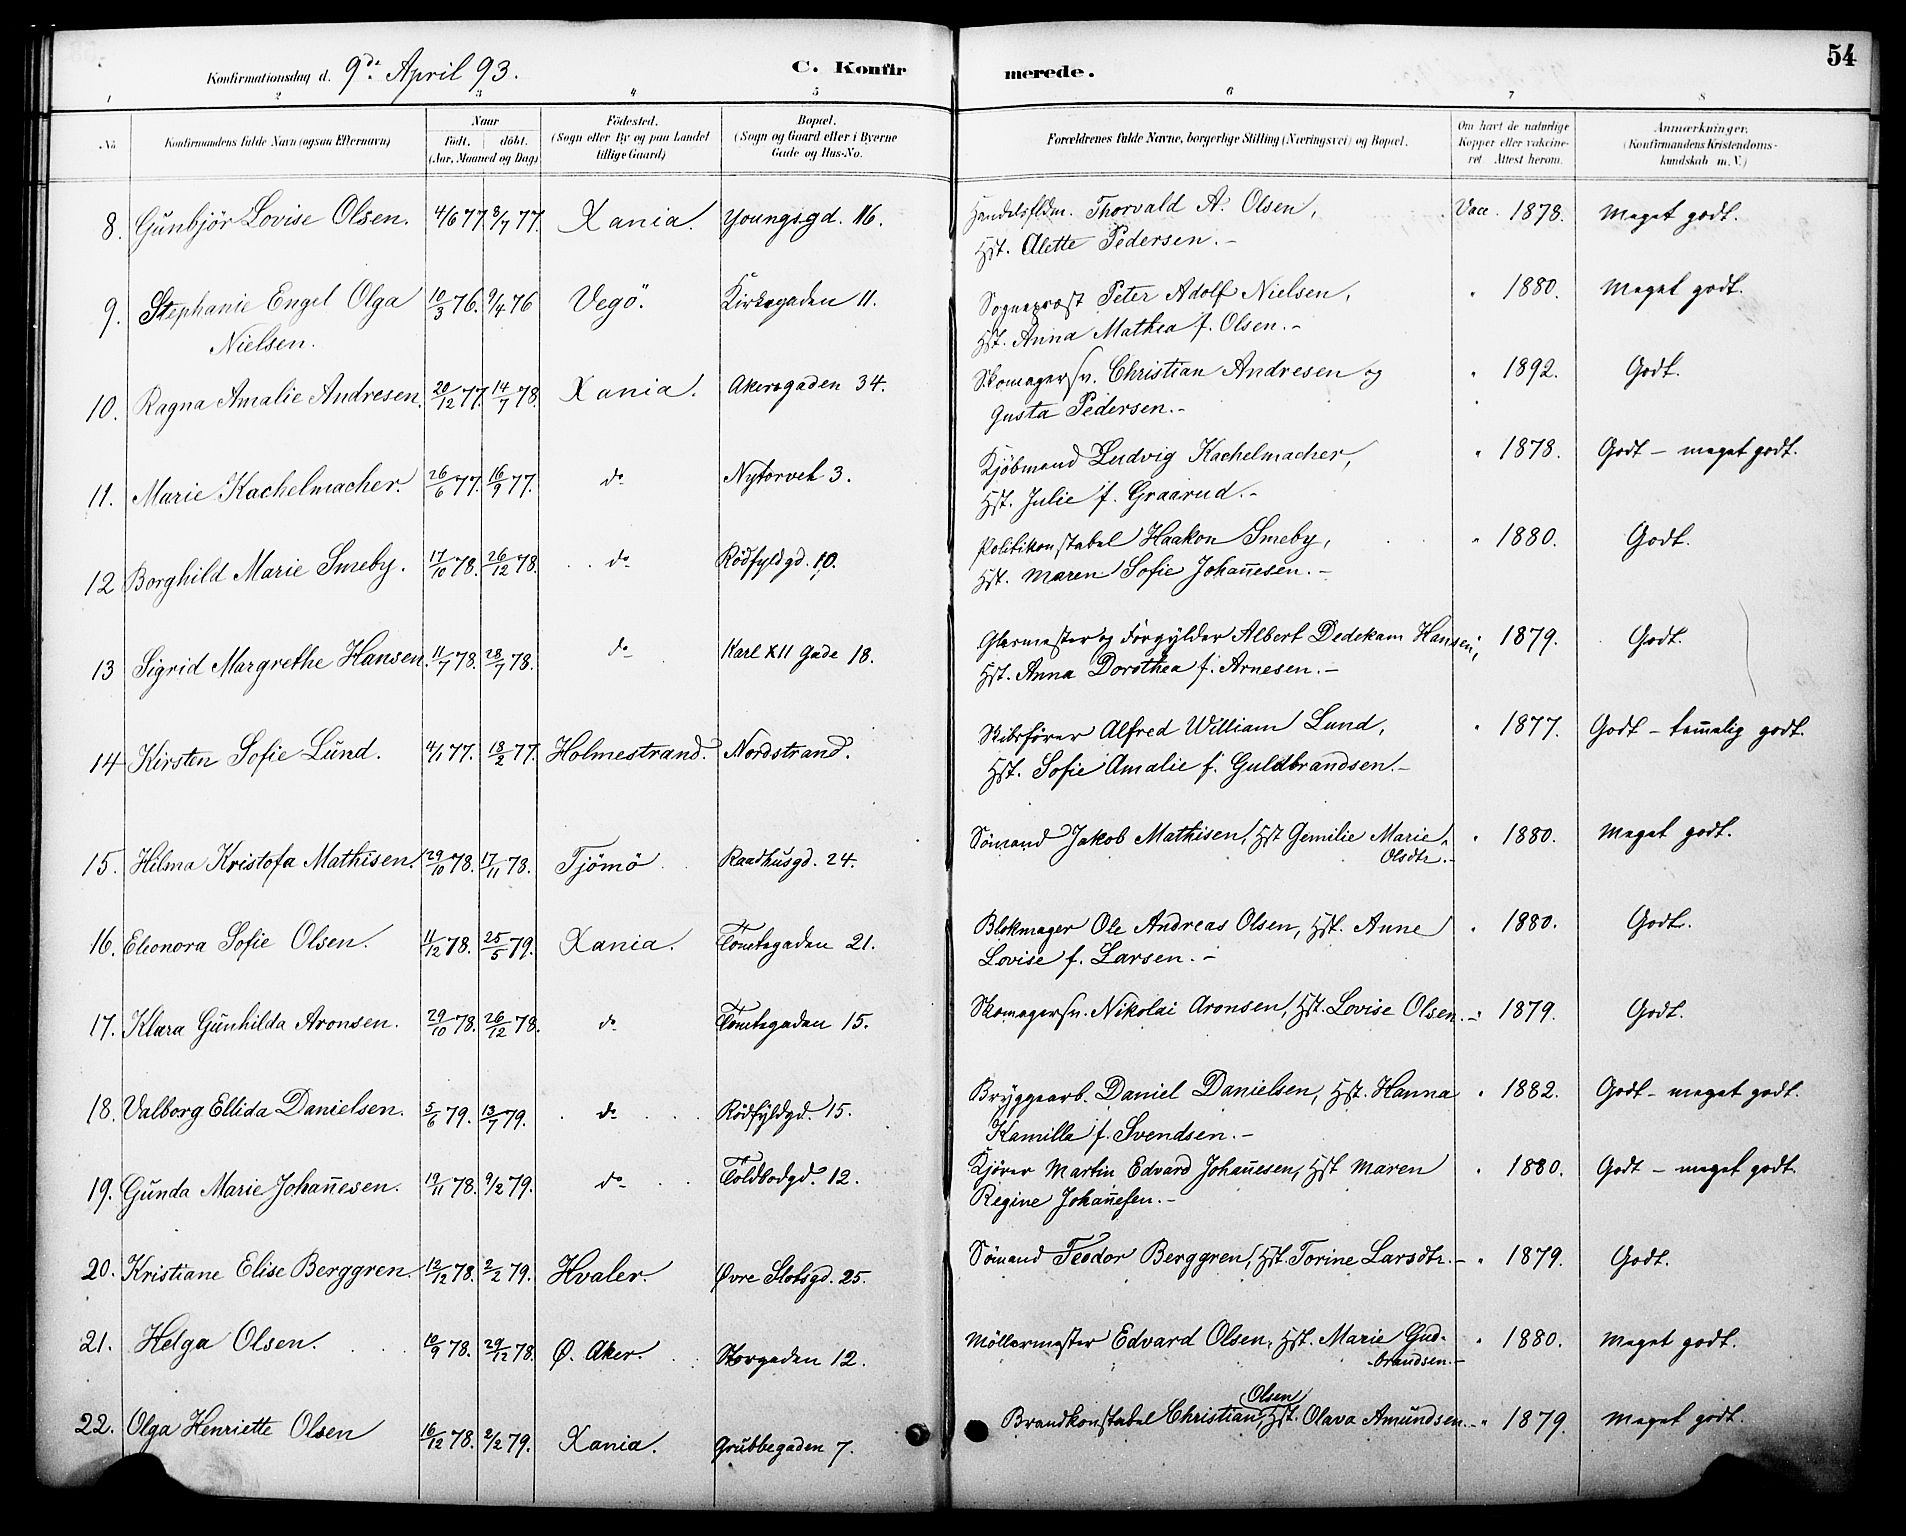 54
Konfirmationsdag d. 9de April 93. C. Konfirmerede.
1 2 3 4 5 6 7 8
No. Konfirmandens fulde Navn (ogsaa Efternavn) Naar Født. døbt. (Aar, Maaned og Dag) Fødested. (Sogn eller By og paa Landet tillige Gaard) Bopæl. (Sogn og Gaard eller i Byerne Gade og Hus-No. Forældrenes fulde Navne, borgerlige Stilling (Næringsvei) og Bopæl. Om havt de naturlige Kopper eller vakcineret. Attest herom. Anmærkninger. (Konfirmandens Kristendomskundskab m. V.)
8. Gunbjör Lovise Olsen. 4/6 77. 8/7 77. Xania. Youngsgd. 16. Handelsfldm. Thorvald A. Olsen, Vacc. 1878. Meget godt.
Hst. Alette Pedersen. –
9. Stephanie Engel Olga 10/3 76. 9/4 76 Vegö. Kirkegaden 11. Sognepræst Peter Adolf Nielsen, " 1880. Meget godt.
Nielsen. Hst. Anna Mathea f. Olsen. –
10. Ragna Amalie Andresen. 20/12 77. 14/7 78. Xania. Akersgaden 34. Skomagersv. Christian Andresen og " 1892. Godt.
Gusta Pedersen. –
11. Marie Kachelmacher. 26/6 77. 16/9 77. do Nytorvet 3. Kjöbmand Ludvig Kachelmacher, " 1878. Godt – meget godt.
Hst. Julie f. Graarud. –
12 Borghild Marie Smeby. 17/10 78. 26/12 78. do Rödfyldgd. 10. Politikonstabel Haakon Smeby, " 1880. Godt.
Hst. Maren Sofie Johan̄esen. –
13 Sigrid Margrethe Hansen. 11/7 78. 28/7 78. do Karl XII Gade 18. Glarmester og Forgylder Albert Dedekam Hansen, " 1879. Godt.
Hst. Anna Dorothea f. Arnesen. –
14 Kirsten Sofie Lund. 4/1 77. 18/2 77. Holmestrand. Nordstrand. Skibsförer Alfred William Lund, " 1877. Godt – tem̄elig godt.
Hst. Sofie Amalie f. Guldbrandsen. –
15. Hilma Kristofa Mathisen. 29/10 78. 17/11 78. Tjömö Raadhusgd. 24. Sömand Jakob Mathisen, Hst Gemilie Marie " 1880. Meget godt.
Olsdtr. –
16. Eleonora Sofie Olsen. 11/12 78. 25/5 79. Xania. Tomtegaden 21. Blokmager Ole Andreas Olsen, Hst. Anne " 1880. Godt.
Lovise f. Larsen. –
17. Klara Gunhilda Aronsen. 29/10 78. 26/12 78. do Tomtegaden 15. Skomagersv. Nikolai Aronsen, Hst. Lovise Olsen. – " 1879. Godt.
18. Valborg Ellida Danielsen. 5/6 79. 13/7 79. do Rödfyldgd. 15. Bryggearb. Daniel Danielsen, Hst. Hanna " 1882. Godt – meget godt.
Kamilla f. Svendsen. –
19. Gunda Marie Johan̄esen. 19/11 78. 9/2 79. do Toldbodgd. 12. Kjörer Martin Edvard Johan̄esen, Hst Maren " 1880. Godt – meget godt.
Regine Johan̄esen. –
20. Kristiane Elise Berggren. 12/12 78. 2/2 79. Hvaler. Øvre Slotsgd. 25. Sömand Teodor Berggren, Hst. Torine Larsdtr. – " 1879. Godt.
21. Helga Olsen. 10/9 78. 29/12 78. Ø. Aker. Storgaden 12. Möllermester Edvard Olsen, Hst. Marie Gud- " 1880. Meget godt.
brandsen. –
22. Olga Henriette Olsen 16/12 78. 2/2 79. Xania. Grubbegaden 7. Brandkonstabel Christian Olsen, Hst. Olava Amundsen. – " 1879. Meget godt.